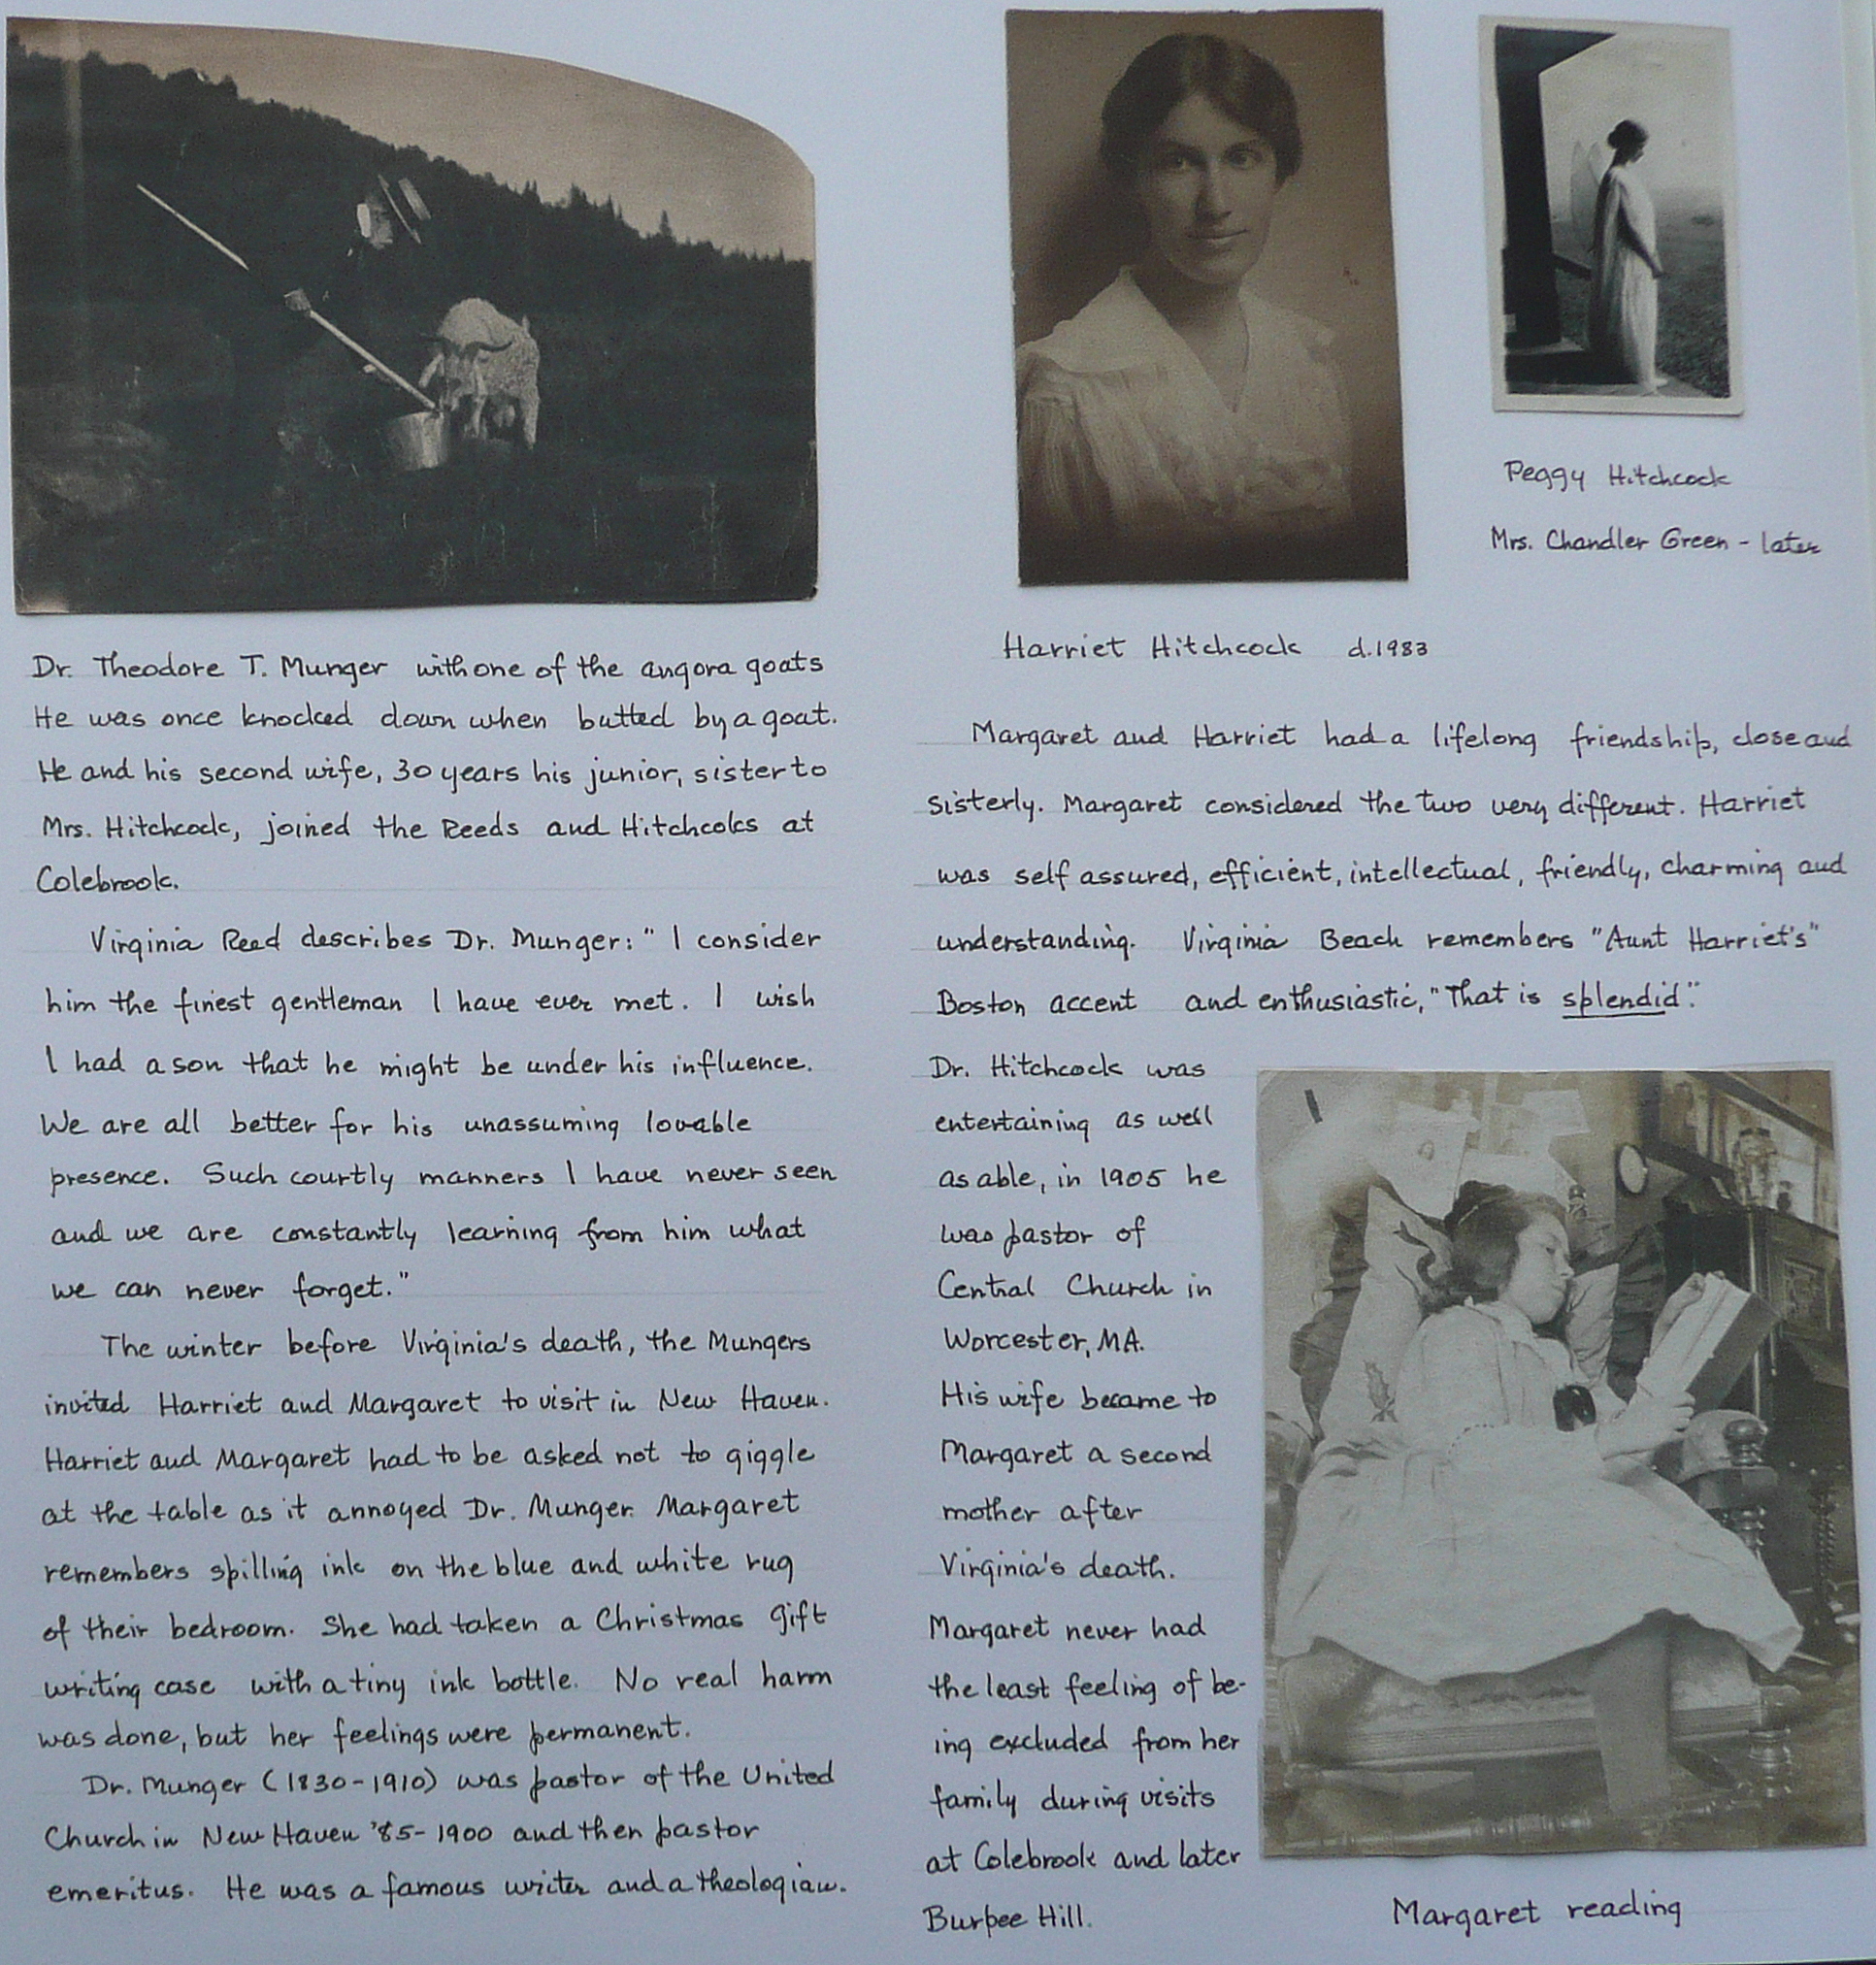 Dr. Theodore T. Munger with one of the angora goats
He was once knocked down when butted by a goat.
He and his second wife, 30 years his junior, sister to
Mrs. Hitchcock, joined the Reeds and Hitchcoks at
Colebrook.
Virginia Reed describes Dr. Munger: "I consider
him the finest gentleman I have ever met. I wish
I had a son that he might be under his influence.
We are all better for his unassuming lovable
presence. Such courtly manners I have never seen
and we are constantly learning from him what
we can never forget."
The winter before Virginia's death, the Mungers
invited Harriet and Margaret to visit in New Haven.
Harriet and Margaret had to be asked not to giggle
at the table as it annoyed Dr. Munger. Margaret
remembers spilling ink on the blue and white rug
of their bedroom. She had taken a Christmas gift
writing case with a tiny ink bottle. No real harm
was done, but her feelings were permanent.
Dr. Munger (1830-1910) was pastor of the United
Church in New Haven '85-1900 and then pastor
emeritus. He was a famous writer and a theologian.
Peggy Hitchcock
Mrs. Chandler Green - later
Harriet Hitchcock d. 1983
Margaret and Harriet had a lifelong friendship, close and
sisterly. Margaret considered the two very different. Harriet
was self assured, efficient, intellectual, friendly, charming and
understanding. Virginia Beach remembers "Aunt Harriet's"
Boston accent and enthusiastic, "That is splendid".
Dr. Hitchcock was
entertaining as well
as able, in 1905 he
was pastor of
Central Church in
Worcester, MA.
His wife became to
Margaret a second
mother after
Virginia's death.
Margaret never had
the least feeling of be-
ing excluded from her
family during visits
at Colebrook and later
Burpee Hill.
Margaret reading